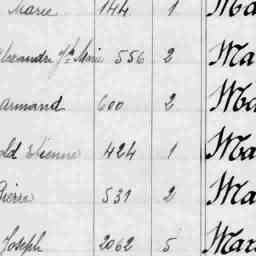 Marie 144 1 Ma
Alexandre Jh Marie 556 2 Ma
armand 600 2 Ma
old Etienne 424 1 Ma
Pierre 531 2 Ma
Joseph 2062 5 Mar